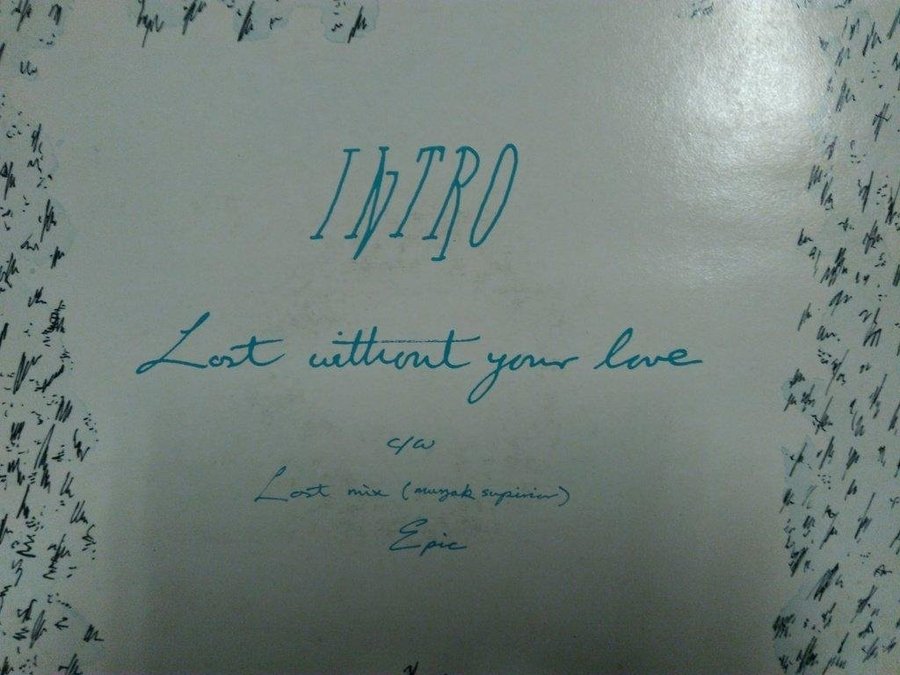 INTRO
Lost without your love
c/w
Lost mix (muzak supirior)
Epic